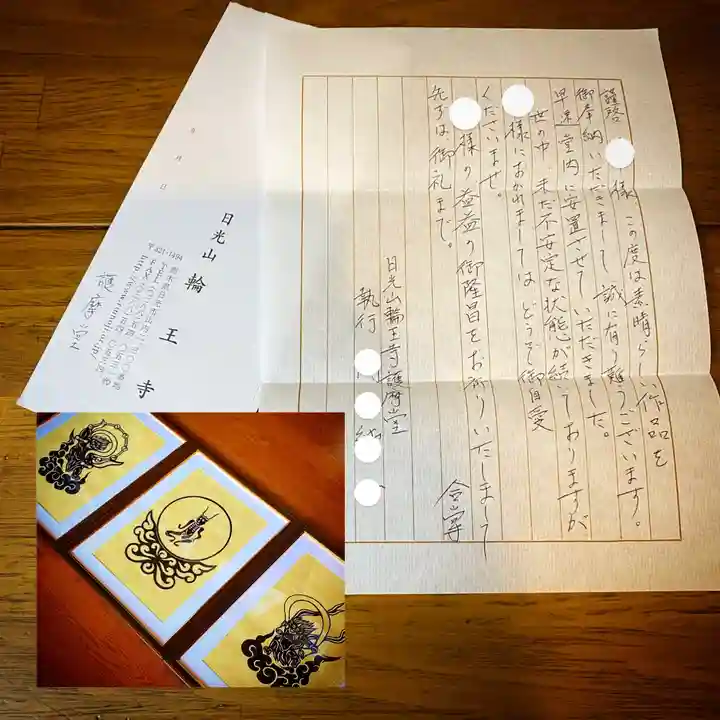 謹啓
様 この度は素晴らしい作品を
御奉納いただきまして 誠に有り難うございます。
早速 堂内に安置させていただきました。
世の中 未だ不安定な状態が続いておりますが
様におかれましては どうぞ御自愛
くださいませ。
様の益益の御隆昌をお祈りいたしまして
先ずは御礼まで。
合掌
日光山輪王寺護摩堂
執行
月 日
日光山 輪王寺
護摩堂